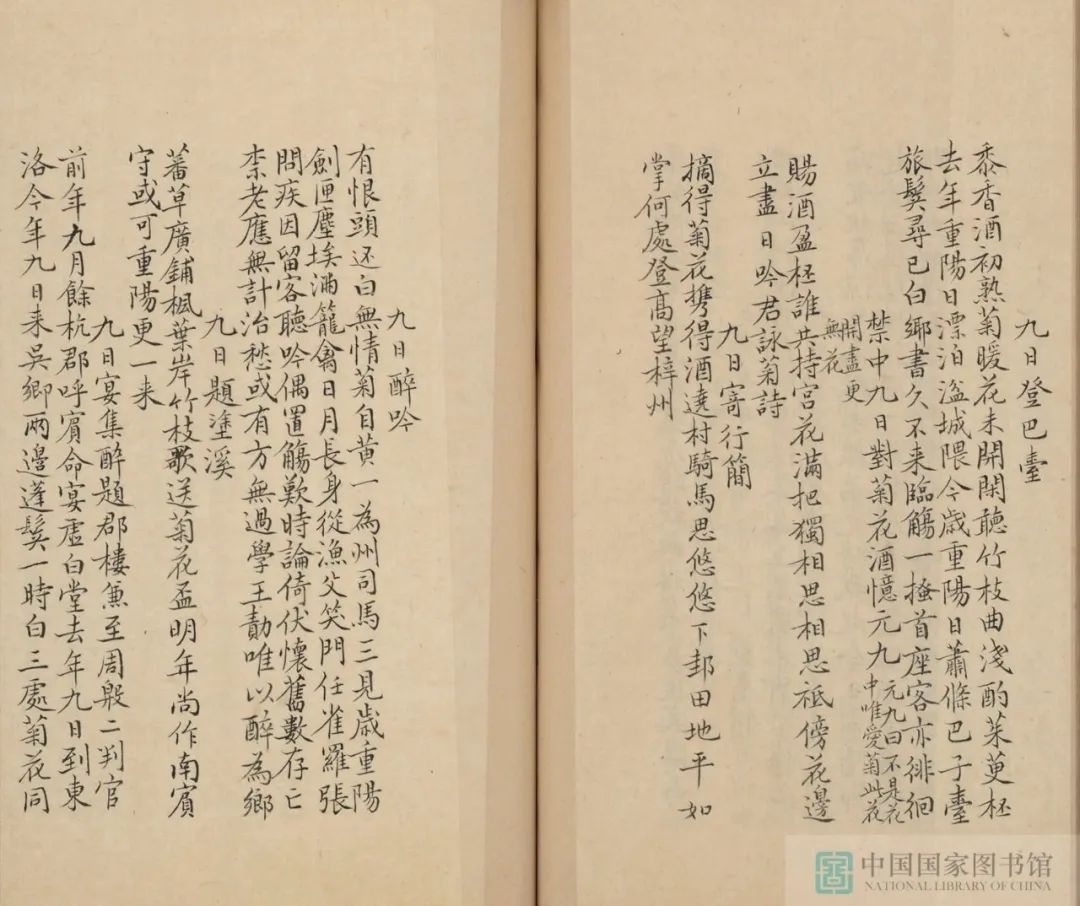 九日登巴臺
黍香酒初熟菊暖花未開閑聽竹枝曲淺酌茱萸杯
去年重陽日漂泊湓城隈今歲重陽日蕭條巴子臺
旅鬢尋已白鄉書久不来臨觴一搔首座客亦徘徊
禁中九日對菊花酒憶元九
元九曰不是花
中唯愛菊此花
開盡更
無花
賜酒盈杯誰共持宮花滿把獨相思相思祗傍花邊
立盡日吟君詠菊詩
九日寄行簡
摘得菊花携得酒遶村騎馬思悠悠下邽田地平如
掌何處登髙望梓州
九日醉吟
有恨頭还白無情菊自黄一為州司馬三見歲重陽
劍匣塵埃滿籠禽日月長身從漁父笑門任雀羅張
問疾因留客聽吟偶置觴歎時論倚伏懷舊數存亡
柰老應無計治愁或有方無過學王勣唯以醉為鄉
九日題塗溪
蕃草廣鋪楓葉岸竹枝歌送菊花盃明年尚作南賓
守或可重陽更一来
九日宴集醉題郡樓兼呈周殷二判官
前年九月餘杭郡呼賓命宴虛白堂去年九日到東
洛今年九日来吳鄉兩邊蓬鬢一時白三處菊花同
中国国家图书馆
NATIONAL LIBRARY OF CHINA